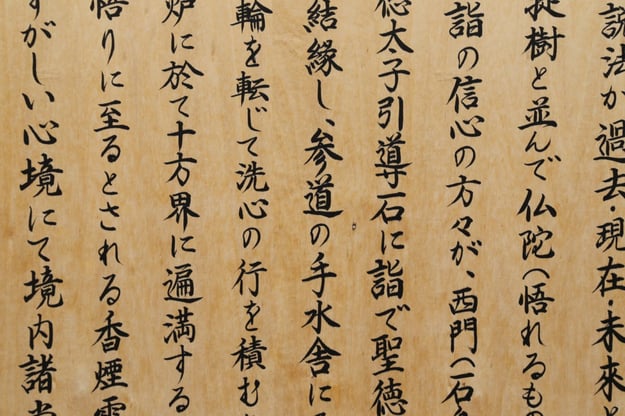 説法が過去・現在・未来と
提樹と並んで仏陀(悟れるもの
詣の信心の方々が、西門(石
徳太子引導石に詣で聖徳
結縁し、参道の手水舎に
輪を転じて洗心の行を積む
炉に於て十方界に遍満する
悟りに至るとされる香煙
すがしい心境にて境内諸